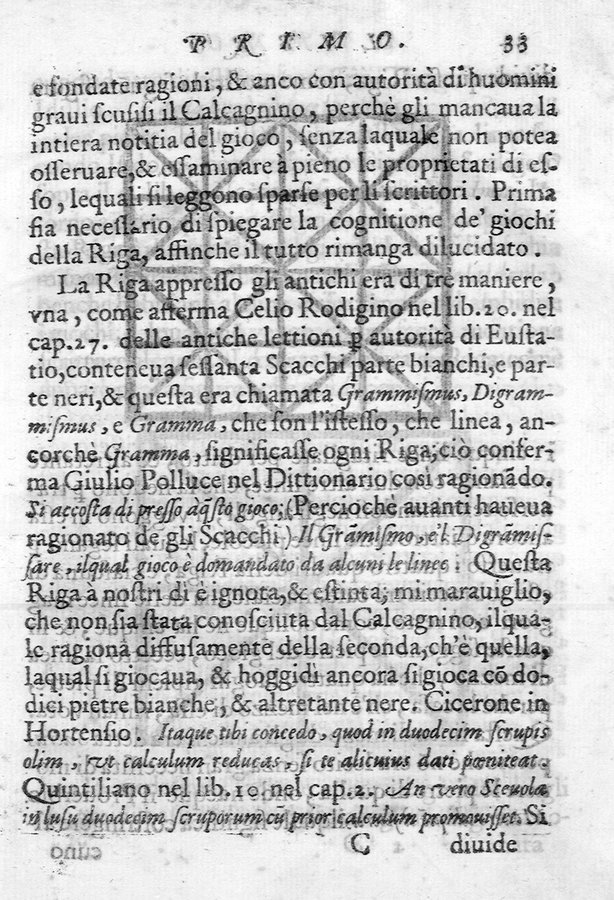 PRIMO. 33
e fondate ragioni, & anco con autorità di huomini
graui scusisi il Calcagnino, perchè gli mancaua la
intiera notitia del gioco, senza laquale non potea
osseruare, & essaminare à pieno le proprietati di es-
so, lequali si leggono sparse per li scrittori. Prima
fia necessario di spiegare la cognitione de' giochi
della Riga, affinche il tutto rimanga dilucidato.
La Riga appresso gli antichi era di tre maniere,
vna, come afferma Celio Rodigino nel lib.20. nel
cap.27. delle antiche lettioni ꝑ autorità di Eusta-
tio, conteneua sessanta Scacchi parte bianchi, e par-
te neri, & questa era chiamata Grammismus, Digram-
mismus, e Gramma, che son l'istesso, che linea, an-
corchè Gramma, significasse ogni Riga; ciò confer-
ma Giulio Polluce nel Dittionario così ragionādo.
Si accosta di presso à q̄sto gioco; (Perciochè auanti haueua
ragionato de gli Scacchi) Il Grāmismo, e'l Digrāmis-
sare, ilqual gioco è domandato da alcuni le linee. Questa
Riga à nostri dì è ignota, & estinta; mi marauiglio,
che non sia stata conosciuta dal Calcagnino, ilqua-
le ragiona diffusamente della seconda, ch'è quella,
laqual si giocaua, & hoggidì ancora si gioca cō do-
dici pietre bianche, & altretante nere. Cicerone in
Hortensio. Itaque tibi concedo, quod in duodecim scrupis
olim, vt calculum reducas, si te alicuius dati pœniteat.
Quintiliano nel lib.10. nel cap.2. An vero Sceuola
in lusu duodecim scruporum cu prior calculum promouisset. Si
C diuide